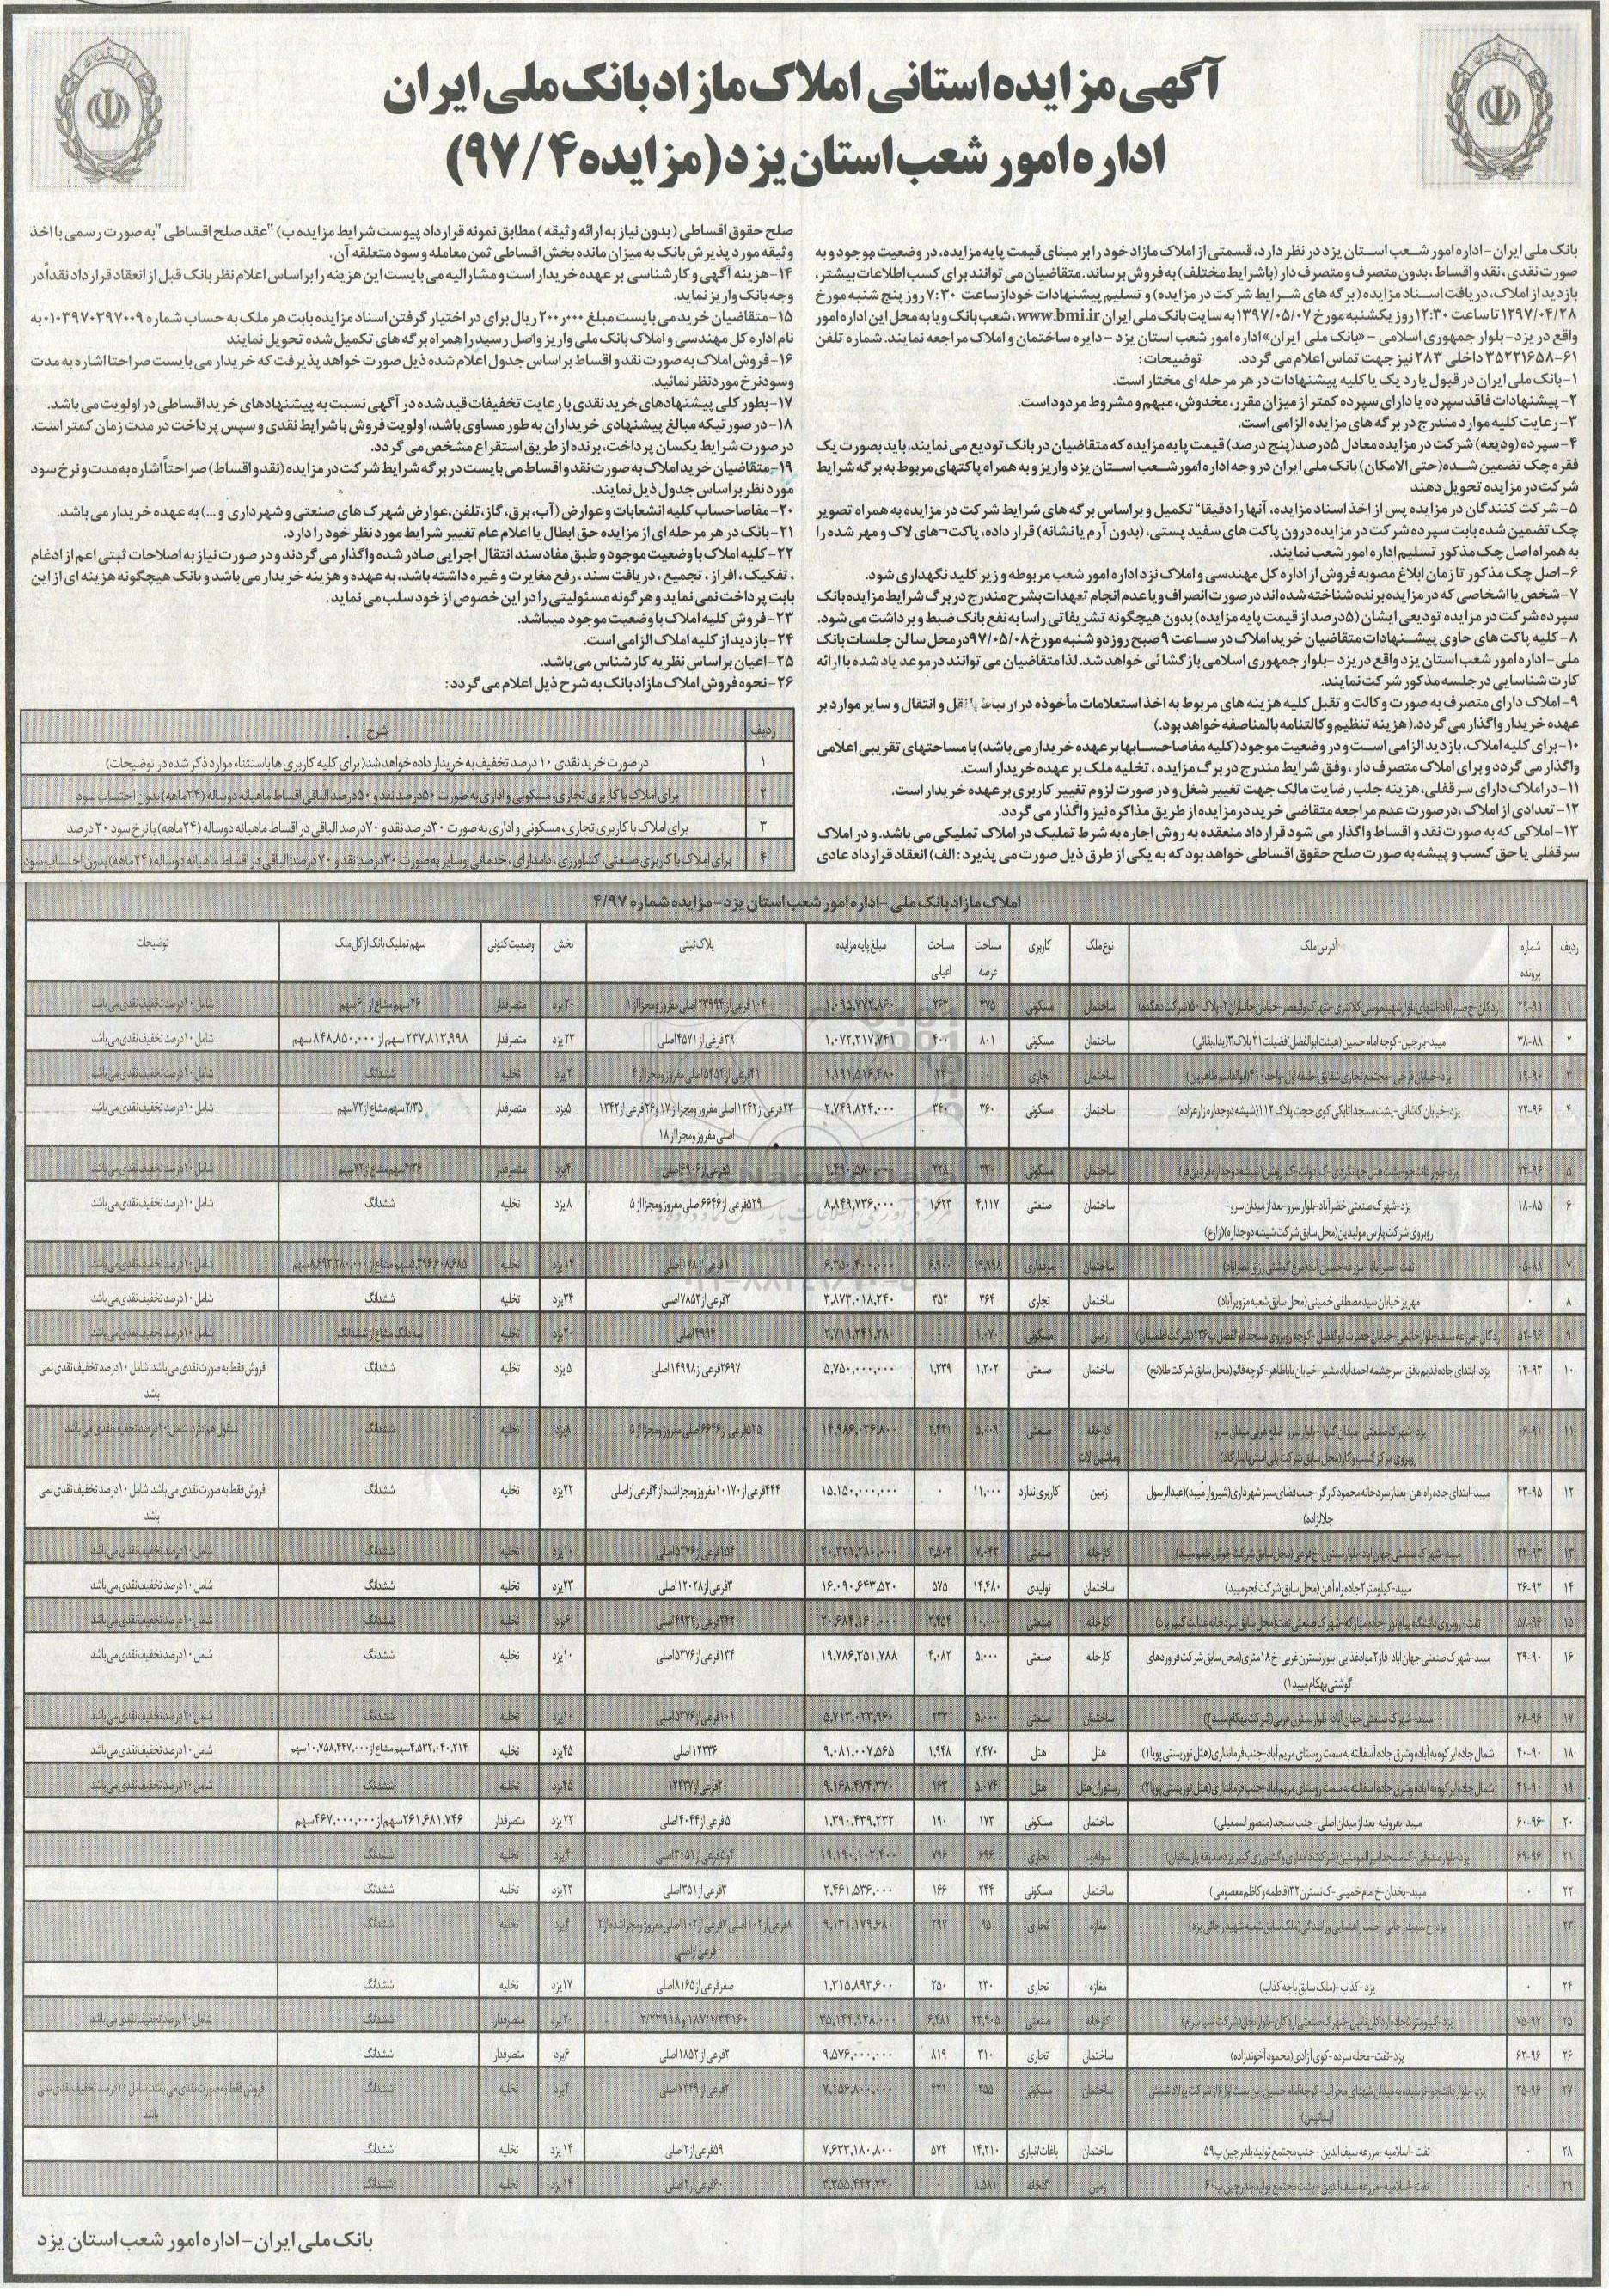 آگهی مزایده استانی املاک مازاد بانک ملی ایران
اداره امور شعب استان یزد (مزایده ۹۷/۴)
بانک ملی ایران-اداره امور شعب استان یزد در نظر دارد، قسمتی از املاک مازاد خود را بر مبنای قیمت پایه مزایده، در وضعیت موجود و به
صورت نقدی، نقد و اقساط، بدون متصرف و متصرف دار (با شرایط مختلف) به فروش برساند. متقاضیان می توانند برای کسب اطلاعات بیشتر،
بازدید از املاک، دریافت اسناد مزایده (برگه های شرایط شرکت در مزایده) و تسلیم پیشنهادات خود از ساعت ۷:۳۰ روز پنج شنبه مورخ
۱۳۹۷/۰۴/۲۸ تا ساعت ۱۲:۳۰ روز یکشنبه مورخ ۱۳۹۷/۰۵/۰۷ به سایت بانک ملی ایران www.bmi.ir، شعب بانک و یا به محل این اداره امور
واقع در یزد- بلوار جمهوری اسلامی - «بانک ملی ایران» اداره امور شعب استان یزد - دایره ساختمان و املاک مراجعه نمایند. شماره تلفن
۳۵۲۲۱۶۵۸-۶۱ داخلی ۲۸۳ نیز جهت تماس اعلام می گردد. توضیحات:
۱-بانک ملی ایران در قبول یا رد یک یا کلیه پیشنهادات در هر مرحله ای مختار است.
۲- پیشنهادات فاقد سپرده یا دارای سپرده کمتر از میزان مقرر، مخدوش، مبهم و مشروط مردود است.
۳- رعایت کلیه موارد مندرج در برگه های مزایده الزامی است.
۴- سپرده (ودیعه) شرکت در مزایده معادل ۵درصد (پنج درصد) قیمت پایه مزایده که متقاضیان در بانک تودیع می نمایند، باید بصورت یک
فقره چک تضمین شده (حتی الامکان) بانک ملی ایران در وجه اداره امور شعب استان یزد واریز و به همراه پاکتهای مربوط به برگه شرایط
شرکت در مزایده تحویل دهند
۵- شرکت کنندگان در مزایده پس از اخذ اسناد مزایده، آنها را دقیقا" تکمیل و براساس برگه های شرایط شرکت در مزایده به همراه تصویر
چک تضمین شده بابت سپرده شرکت در مزایده درون پاکت های سفید پستی، (بدون آرم یا نشانه) قرار داده، پاکت¬های لاک و مهر شده را
به همراه اصل چک مذکور تسلیم اداره امور شعب نمایند.
۶- اصل چک مذکور تا زمان ابلاغ مصوبه فروش از اداره کل مهندسی و املاک نزد اداره امور شعب مربوطه و زیر کلید نگهداری شود.
۷- شخص یا اشخاصی که در مزایده برنده شناخته شده اند در صورت انصراف و یا عدم انجام تعهدات بشرح مندرج در برگ شرایط مزایده بانک
سپرده شرکت در مزایده تودیعی ایشان (۵درصد از قیمت پایه مزایده) بدون هیچگونه تشریفاتی راسا به نفع بانک ضبط و برداشت می شود.
۸- کلیه پاکت های حاوی پیشنهادات متقاضیان خرید املاک در ساعت ۹صبح روز دو شنبه مورخ ۹۷/۰۵/۰۸ در محل سالن جلسات بانک
ملی-اداره امور شعب استان یزد واقع در یزد -بلوار جمهوری اسلامی بازگشائی خواهد شد. لذا متقاضیان می توانند در موعد یاد شده با ارائه
کارت شناسایی در جلسه مذکور شرکت نمایند.
۹- املاک دارای متصرف به صورت وکالت و تقبل کلیه هزینه های مربوط به اخذ استعلامات مأخوذه در ارتباط با نقل و انتقال و سایر موارد بر
عهده خریدار واگذار می گردد.( هزینه تنظیم وکالتنامه بالمناصفه خواهد بود.)
۱۰- برای کلیه املاک، بازدید الزامی است و در وضعیت موجود (کلیه مفاصاحسابها بر عهده خریدار می باشد) با مساحتهای تقریبی اعلامی
واگذار می گردد و برای املاک متصرف دار، وفق شرایط مندرج در برگ مزایده، تخلیه ملک بر عهده خریدار است.
۱۱- در املاک دارای سرقفلی، هزینه جلب رضایت مالک جهت تغییر شغل و در صورت لزوم تغییر کاربری بر عهده خریدار است.
۱۲- تعدادی از املاک، در صورت عدم مراجعه متقاضی خرید در مزایده از طریق مذاکره نیز واگذار می گردد.
۱۳- املاکی که به صورت نقد و اقساط واگذار می شود قرارداد منعقده به روش اجاره به شرط تملیک در املاک تملیکی می باشد. و در املاک
سرقفلی یا حق کسب و پیشه به صورت صلح حقوق اقساطی خواهد بود که به یکی از طرق ذیل صورت می پذیرد: الف) انعقاد قرارداد عادی
صلح حقوق اقساطی (بدون نیاز به ارائه وثیقه) مطابق نمونه قرارداد پیوست شرایط مزایده ب) "عقد صلح اقساطی" به صورت رسمی با اخذ
وثیقه مورد پذیرش بانک به میزان مانده بخش اقساطی ثمن معامله و سود متعلقه آن.
۱۴-هزینه آگهی و کارشناسی بر عهده خریدار است و مشارالیه می بایست این هزینه را براساس اعلام نظر بانک قبل از انعقاد قرارداد نقداً در
وجه بانک واریز نماید.
۱۵-متقاضیان خرید می بایست مبلغ ۲۰۰٫۰۰۰ ریال برای در اختیار گرفتن اسناد مزایده بابت هر ملک به حساب شماره ۰۱۰۳۹۷۰۳۹۷۰۰۹ به
نام اداره کل مهندسی و املاک بانک ملی واریز و اصل رسید را همراه برگه های تکمیل شده تحویل نمایند
۱۶-فروش املاک به صورت نقد و اقساط بر اساس جدول اعلام شده ذیل صورت خواهد پذیرفت که خریدار می بایست صراحتا اشاره به مدت
و سود نرخ مورد نظر نمائید.
۱۷-بطور کلی پیشنهادهای خرید نقدی با رعایت تخفیفات قید شده در آگهی نسبت به پیشنهادهای خرید اقساطی در اولویت می باشد.
۱۸- در صورتیکه مبالغ پیشنهادی خریداران به طور مساوی باشد، اولویت فروش با شرایط نقدی و سپس پرداخت در مدت زمان کمتر است.
در صورت شرایط یکسان پرداخت، برنده از طریق استقراع مشخص می گردد.
۱۹-متقاضیان خرید املاک به صورت نقد و اقساط می بایست در برگه شرایط شرکت در مزایده (نقد و اقساط) صراحتاً اشاره به مدت و نرخ سود
مورد نظر بر اساس جدول ذیل نمایند.
۲۰-مفاصاحساب کلیه انشعابات و عوارض (آب، برق، گاز، تلفن، عوارض شهرک های صنعتی و شهرداری و ...) به عهده خریدار می باشد.
۲۱-بانک در هر مرحله ای از مزایده حق ابطال یا اعلام عام تغییر شرایط مورد نظر خود را دارد.
۲۲-کلیه املاک با وضعیت موجود و طبق مفاد سند انتقال اجرایی صادر شده واگذار می گردند و در صورت نیاز به اصلاحات ثبتی اعم از ادغام
، تفکیک، افراز، تجمیع، دریافت سند، رفع مغایرت و غیره داشته باشد، به عهده و هزینه خریدار می باشد و بانک هیچگونه هزینه ای از این
بابت پرداخت نمی نماید و هرگونه مسئولیتی را در این خصوص از خود سلب می نماید.
۲۳-فروش کلیه املاک با وضعیت موجود میباشد.
۲۴-بازدید از کلیه املاک الزامی است.
۲۵-اعیان بر اساس نظریه کارشناس می باشد.
۲۶-نحوه فروش املاک مازاد بانک به شرح ذیل اعلام می گردد:
ردیف شرح
۱ در صورت خرید نقدی ۱۰ درصد تخفیف به خریدار داده خواهد شد (برای کلیه کاربری ها باستثناء موارد ذکر شده در توضیحات)
۲ برای املاک با کاربری تجاری، مسکونی و اداری به صورت ۵۰درصد نقد و ۵۰درصد الباقی اقساط ماهیانه دوساله (۲۴ماهه) بدون احتساب سود
۳ برای املاک با کاربری تجاری، مسکونی و اداری به صورت ۳۰درصد نقد و ۷۰درصد الباقی در اقساط ماهیانه دوساله (۲۴ماهه) با نرخ سود ۲۰ درصد
۴ برای املاک با کاربری صنعتی، کشاورزی، دامداری، خدماتی و سایر به صورت ۳۰درصد نقد و ۷۰درصد الباقی در اقساط ماهیانه دوساله (۲۴ماهه) بدون احتساب سود
املاک مازاد بانک ملی -اداره امور شعب استان یزد-مزایده شماره ۴/۹۷
ردیف شماره پرونده آدرس ملک نوع ملک کاربری مساحت عرصه مساحت اعیانی مبلغ پایه مزایده پلاک ثبتی بخش وضعیت کنونی سهم تملیک بانک از کل ملک توضیحات
۱ ۲۹-۹۱ ساختمان مسکونی ۳۷۵ ۲۶۳ ۱,۰۹۵,۷۷۲,۸۶۰ ۱۰۴فرعی از ۲۳۹۹۴اصلی مفروز و مجزا از ۱ ۲۰یزد متصرفدار ۲۶سهم مشاع از ۶۰سهم شامل ۱۰درصد تخفیف نقدی می باشد
۲ ۳۸-۸۸ میبد-بارجین-کوچه امام حسین (هیئت ابوالفضل) فضیلت ۲۱ پلاک ۳ ساختمان مسکونی ۸۰۱ ۴۰۰ ۱,۰۷۲,۲۱۷,۷۴۱ ۳۹فرعی از ۴۵۷۱اصلی ۲۳یزد متصرفدار ۲۳۷,۸۱۳,۹۹۸ سهم از ۸۴۸,۸۵۰,۰۰۰ سهم شامل ۱۰درصد تخفیف نقدی می باشد
۳ ۱۹-۹۰ یزد-خیابان فرخی-مجتمع تجاری شقایق-طبقه اول-واحد ۴۱۰ (ابوالقاسم طاهریان) ساختمان تجاری ۰ ۲۳ ۱,۱۹۱,۵۱۶,۴۸۰ ۴۱فرعی از ۵۴۵۴اصلی مفروز و مجزا از ۴ ۲یزد تخلیه ششدانگ شامل ۱۰درصد تخفیف نقدی می باشد
۴ ۷۲-۹۶ یزد-خیابان کاشانی-پشت مسجد اتابکی کوی حجت پلاک ۱۱۲ (شیشه دوجداره زارعزاده) ساختمان مسکونی ۳۶۰ ۳۴۰ ۲,۷۴۹,۸۲۴,۰۰۰ ۲۳فرعی از ۱۲۴۲اصلی مفروز و مجزا از ۱۷ و ۲۶فرعی از ۱۲۴۲ اصلی مفروز و مجزا از ۱۸ ۵یزد متصرفدار ۲/۳۵سهم مشاع از ۷۲سهم شامل ۱۰درصد تخفیف نقدی می باشد
۵ ۷۳-۹۶ ساختمان مسکونی ۳۳۰ ۲۲۸ ۱,۴۹۰,۵۸۰,۰۰۰ ۵فرعی از ۶۹۰۶اصلی ۴یزد متصرفدار ۴/۳۶سهم مشاع از ۷۲سهم شامل ۱۰درصد تخفیف نقدی می باشد
۶ ۱۸-۸۵ یزد-شهرک صنعتی خضرآباد-بلوار سرو-بعد از میدان سرو- روبروی شرکت پارس مولیدین (محل سابق شرکت شیشه دوجداره) (زارع) ساختمان صنعتی ۴,۱۱۷ ۱,۶۲۳ ۸,۸۴۹,۷۳۶,۰۰۰ ۵۲۹فرعی از ۶۶۴۶اصلی مفروز و مجزا از ۵ ۸یزد تخلیه ششدانگ شامل ۱۰درصد تخفیف نقدی می باشد
۷ ۰۵-۸۸ تفت-نصرآباد-مزرعه حسین آباد (مرغ گوشتی رزاق نصرآباد) ساختمان مرغداری ۱۹,۹۹۸ ۶,۹۰۰ ۶,۳۵۰,۴۰۰,۰۰۰ ۱فرعی از ۱۷۸اصلی ۱۴یزد تخلیه ۵,۳۹۶,۶۰۸,۶۸۵سهم مشاع از ۸,۶۹۳,۲۸۰,۰۰۰سهم شامل ۱۰درصد تخفیف نقدی می باشد
۸ ۰ مهریز خیابان سیدمصطفی خمینی (محل سابق شعبه مزویرآباد) ساختمان تجاری ۳۶۴ ۳۵۲ ۳,۸۷۳,۰۱۸,۲۴۰ ۲فرعی از ۷۸۵۲اصلی ۳۴یزد تخلیه ششدانگ شامل ۱۰درصد تخفیف نقدی می باشد
۹ ۵۲-۹۶ زمین مسکونی ۱,۰۷۰ ۰ ۲,۷۱۹,۲۴۱,۲۸۰ ۴۹۹۴اصلی ۲۰یزد تخلیه سه دانگ مشاع از ششدانگ شامل ۱۰درصد تخفیف نقدی می باشد
۱۰ ۱۴-۹۳ یزد-ابتدای جاده قدیم بافق-سرچشمه احمدآباد مشیر-خیابان باباطاهر-کوچه قائم (محل سابق شرکت طلانخ) ساختمان صنعتی ۱,۲۰۲ ۱,۳۳۹ ۵,۷۵۰,۰۰۰,۰۰۰ ۲۶۹۷فرعی از ۱۴۹۹۸اصلی ۵یزد تخلیه ششدانگ فروش فقط به صورت نقدی می باشد. شامل ۱۰درصد تخفیف نقدی نمی باشد
۱۱ ۰۶-۹۱ یزد-شهرک صنعتی-میدان گلها-بلوار سرو-ضلع غربی میدان سرو- روبروی مرکز کسب و کار (محل سابق شرکت پلی استر پاسارگاد) کارخانه و ماشین آلات صنعتی ۵,۰۰۹ ۲,۴۴۱ ۱۴,۹۸۶,۰۳۶,۸۰۰ ۵۲۵فرعی از ۶۶۴۶اصلی مفروز و مجزا از ۵ ۸یزد تخلیه ششدانگ منقول هم دارد. شامل ۱۰درصد تخفیف نقدی می باشد
۱۲ ۴۳-۹۵ میبد-ابتدای جاده راه آهن-بعد از سردخانه محمود کارگر-جنب فضای سبز شهرداری (شیروار میبد) (عبدالرسول جلالزاده) زمین کاربری ندارد ۱۱,۰۰۰ ۰ ۱۵,۱۵۰,۰۰۰,۰۰۰ ۴۴۴فرعی از ۱۰۱۷۰مفروز و مجزا شده از ۴فرعی از اصلی ۲۲یزد تخلیه ششدانگ فروش فقط به صورت نقدی می باشد. شامل ۱۰درصد تخفیف نقدی نمی باشد
۱۳ ۳۴-۹۳ میبد-شهرک صنعتی جهان آباد-بلوار نسترن-خ فرعی (محل سابق شرکت خوش طعم میبد) کارخانه صنعتی ۷,۰۴۳ ۳,۵۰۳ ۲۰,۳۲۱,۲۸۰,۰۰۰ ۱۵۴فرعی از ۵۳۷۶اصلی ۱۰یزد تخلیه ششدانگ شامل ۱۰درصد تخفیف نقدی می باشد
۱۴ ۳۶-۹۲ میبد-کیلومتر ۲جاده راه آهن (محل سابق شرکت فجر میبد) ساختمان تولیدی ۱۴,۴۸۰ ۵۷۵ ۱۶,۰۹۰,۶۴۳,۵۲۰ ۳فرعی از ۱۲۰۲۸اصلی ۲۳یزد تخلیه ششدانگ شامل ۱۰درصد تخفیف نقدی می باشد
۱۵ ۵۸-۹۶ تفت-روبروی دانشگاه پیام نور-جاده مبارکه-شهرک صنعتی تفت (محل سابق سردخانه عدالت کبیر یزد) کارخانه صنعتی ۱۰,۰۰۰ ۲,۴۵۴ ۲۰,۶۸۴,۱۶۰,۰۰۰ ۲۴۲فرعی از ۴۹۳۲اصلی ۶یزد تخلیه ششدانگ شامل ۱۰درصد تخفیف نقدی می باشد
۱۶ ۳۹-۹۰ میبد-شهرک صنعتی جهان آباد-فاز ۲ موادغذایی-بلوار نسترن غربی-خ ۱۸ متری (محل سابق شرکت فراوردهای گوشتی بهکام میبد ۱) کارخانه صنعتی ۵,۰۰۰ ۴,۰۸۲ ۱۹,۷۸۶,۳۵۱,۷۸۸ ۱۳۴فرعی از ۵۳۷۶اصلی ۱۰یزد تخلیه ششدانگ شامل ۱۰درصد تخفیف نقدی می باشد
۱۷ ۶۸-۹۶ میبد-شهرک صنعتی جهان آباد-بلوار نسترن غربی (شرکت بهکام میبد ۲) ساختمان صنعتی ۵,۰۰۰ ۲۳۳ ۵,۷۱۳,۰۲۳,۹۶۰ ۱۰۱فرعی از ۵۳۷۶اصلی ۱۰یزد تخلیه ششدانگ شامل ۱۰درصد تخفیف نقدی می باشد
۱۸ ۴۰-۹۰ شمال جاده ابرکوه به آباده و شرق جاده آسفالته به سمت روستای مریم آباد-جنب فرمانداری (هتل توریستی پویا ۱) هتل هتل ۷,۴۷۰ ۱,۹۴۸ ۹,۰۸۱,۰۰۷,۵۶۵ ۱۲۲۳۶اصلی ۴۵یزد تخلیه ۴,۵۳۲,۰۴۰,۲۱۴سهم مشاع از ۱۰,۷۵۸,۴۴۷,۰۰۰سهم شامل ۱۰درصد تخفیف نقدی می باشد
۱۹ ۴۱-۹۰ شمال جاده ابرکوه به آباده و شرق جاده آسفالته به سمت روستای مریم آباد-جنب فرمانداری (هتل توریستی پویا ۲) رستوران هتل هتل ۵,۰۷۴ ۱۶۳ ۹,۱۶۸,۴۷۴,۳۷۰ ۲فرعی از ۱۲۲۳۷ ۴۵یزد تخلیه ششدانگ شامل ۱۰درصد تخفیف نقدی می باشد
۲۰ ۶۰-۹۶ میبد-بفروئیه-بعد از میدان اصلی-جنب مسجد (منصور اسمعیلی) ساختمان مسکونی ۱۷۳ ۱۹۰ ۱,۳۹۰,۴۳۹,۲۳۲ ۵فرعی از ۴۰۴۴اصلی ۲۲یزد متصرفدار ۲۶۱,۶۸۱,۷۴۶سهم از ۴۶۷,۰۰۰,۰۰۰سهم
۲۱ ۶۹-۹۶ تجاری ۶۹۶ ۷۹۶ ۱۹,۱۹۰,۱۰۲,۴۰۰ ۴و۵فرعی از ۳۰۵۱اصلی ۴یزد تخلیه ششدانگ
۲۲ ۰ میبد-یخدان-خ امام خمینی-ک نسترن ۳۲ (فاطمه و کاظم معصومی) ساختمان مسکونی ۲۴۴ ۱۶۶ ۲,۴۶۱,۵۳۶,۰۰۰ ۳فرعی از ۳۵۱اصلی ۲۲یزد تخلیه ششدانگ
۲۳ یزد-خ شهید رجائی-جنب راهنمایی و رانندگی (ملک سابق شعبه شهید رجائی یزد) مغازه تجاری ۹۵ ۲۹۷ ۹,۱۳۱,۱۷۹,۶۸۰ ۸فرعی از ۱۰۲اصلی ۷فرعی از ۱۰۲اصلی مفروز و مجزا شده از ۲ فرعی از اصلی ۴یزد تخلیه ششدانگ
۲۴ ۰ یزد-کذاب-(ملک سابق باجه کذاب) مغازه تجاری ۲۳۰ ۲۵۰ ۱,۳۱۵,۸۹۳,۶۰۰ صفر فرعی از ۸۱۶۵اصلی ۱۷یزد تخلیه ششدانگ
۲۵ ۷۵-۹۷ یزد-کیلومتر ۵جاده اردکان نائین-شهرک صنعتی اردکان-بلوار نخل (شرکت آسیا سرام) کارخانه صنعتی ۲۳,۹۰۵ ۶,۴۸۱ ۳۵,۱۴۴,۹۲۸,۰۰۰ ۲۰یزد متصرفدار ششدانگ شامل ۱۰درصد تخفیف نقدی می باشد
۲۶ ۶۲-۹۶ یزد-تفت-محله سرده-کوی آزادی (محمود آخوندزاده) ساختمان تجاری ۳۱۰ ۸۱۹ ۹,۵۷۶,۰۰۰,۰۰۰ ۲فرعی از ۱۸۵۲اصلی ۶یزد متصرفدار ششدانگ
۲۷ ۳۵-۹۶ یزد-بلوار دانشجو-نرسیده به میدان شهدای محراب-کوچه امام حسین-بن بست اول (از شرکت پولاد شمش ایساتیس) ساختمان مسکونی ۲۵۵ ۴۲۱ ۷,۱۵۶,۸۰۰,۰۰۰ ۲فرعی از ۷۳۴۹اصلی ۴یزد تخلیه ششدانگ فروش فقط به صورت نقدی می باشد. شامل ۱۰درصد تخفیف نقدی نمی باشد
۲۸ ۰ تفت-اسلامیه-مزرعه سیف الدین-جنب مجتمع تولید بلدرچین پ ۵۹ ساختمان باغات/انباری ۱۴,۲۱۰ ۵۷۴ ۷,۶۳۳,۱۸۰,۸۰۰ ۵۹فرعی از ۲اصلی ۱۴یزد تخلیه ششدانگ
۲۹ ۰ تفت-اسلامیه-مزرعه سیف الدین-پشت مجتمع تولید بلدرچین پ ۶۰ زمین گلخانه ۸,۵۸۱ ۰ ۳,۳۵۵,۴۴۲,۲۴۰ ۶۰فرعی از ۲اصلی ۱۴یزد تخلیه ششدانگ
بانک ملی ایران-اداره امور شعب استان یزد